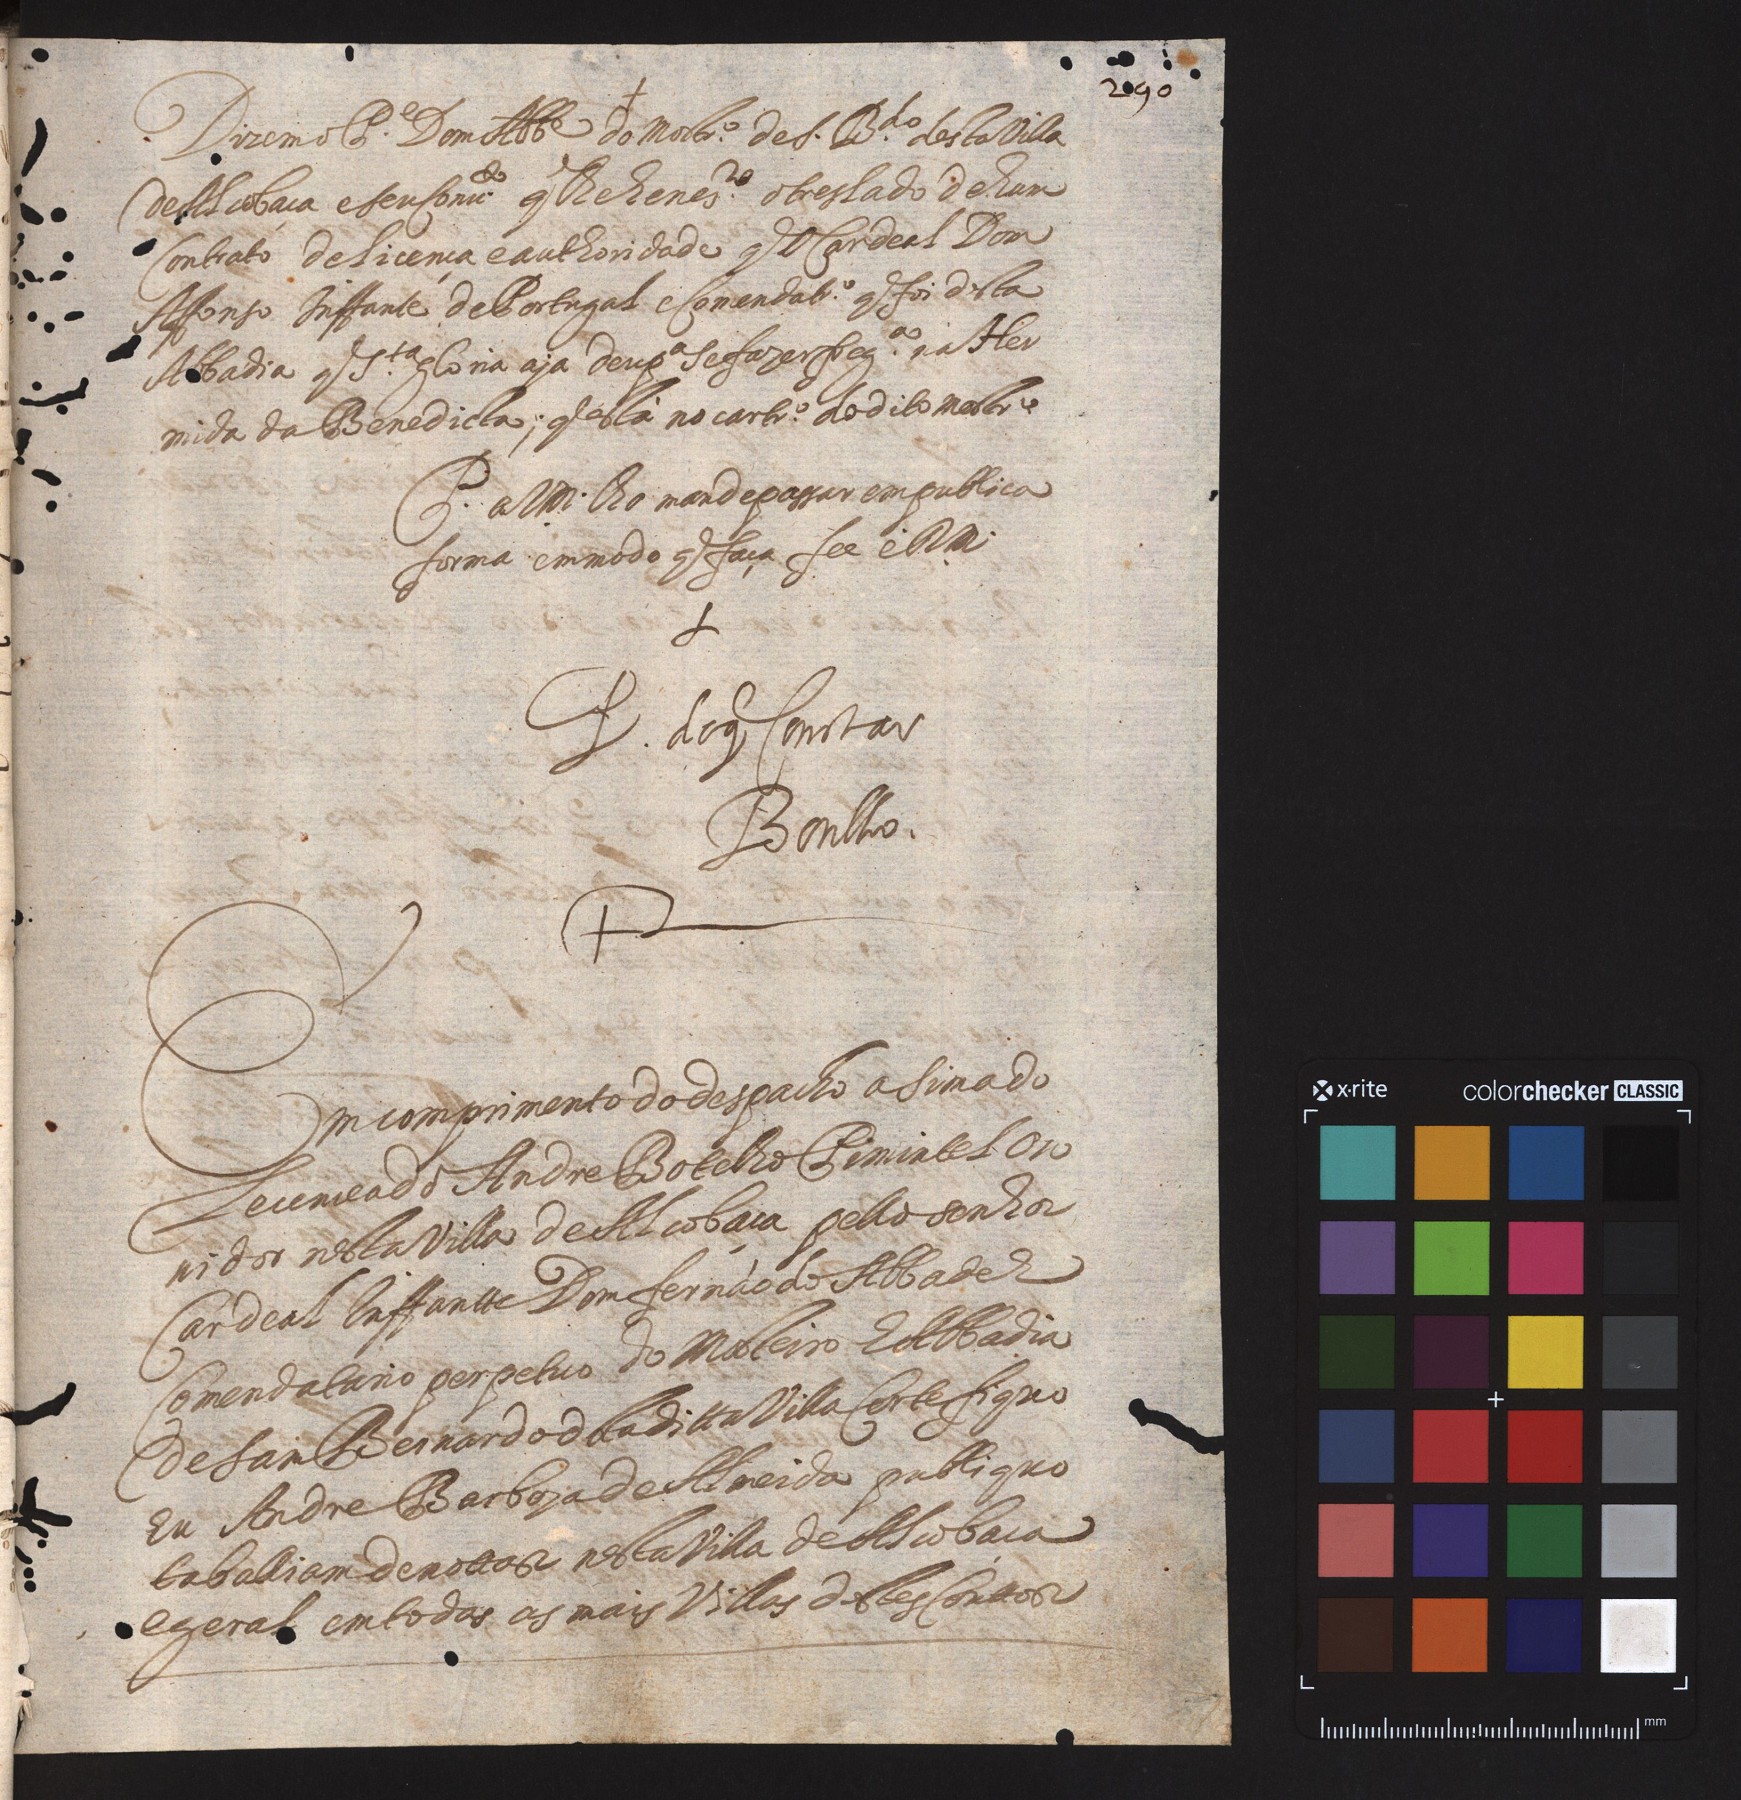 290
Dizem o P.e Dom Abb.e do Mostr.o de S. B.do desta Villa
de Alcobaça e seu Conu.do q̃ lhe he neçs.ro o treslado de hum
Contrato de licença e authoridade q̃ o Cardeal Dom
Affonso Inffante de Portugal e Comendatr.o q̃ foi desta
Abbadia q̃ S.ta gloria aja se fazer freg.a na Her
mida da Benedicta, q̃ está no cartr.o do dito Mostr.o
P. a VM. lho mande passar em publica
forma em modo q̃ faça fee e RM.
P. do q̃ Constar
Botelho.
Em comprimento do despacho asima do
Lecenceado Andre Botelho Pimintel Ou
uidor nesta Villa de Alcobaça pello senhor
Cardeal Inffantte Dom fernãdo Abbade E
Comendatario perpetuo do Mosteiro E Abbadia
de sam Bernardo da ditta Villa Certefiquo
Eu Andre Barboza de Almeida publiquo
taballiam de nottas nesta Villa de Alcobaça
e geral em todas as mais Villas destes Couttos
x·rite
colorchecker CLASSIC
mm